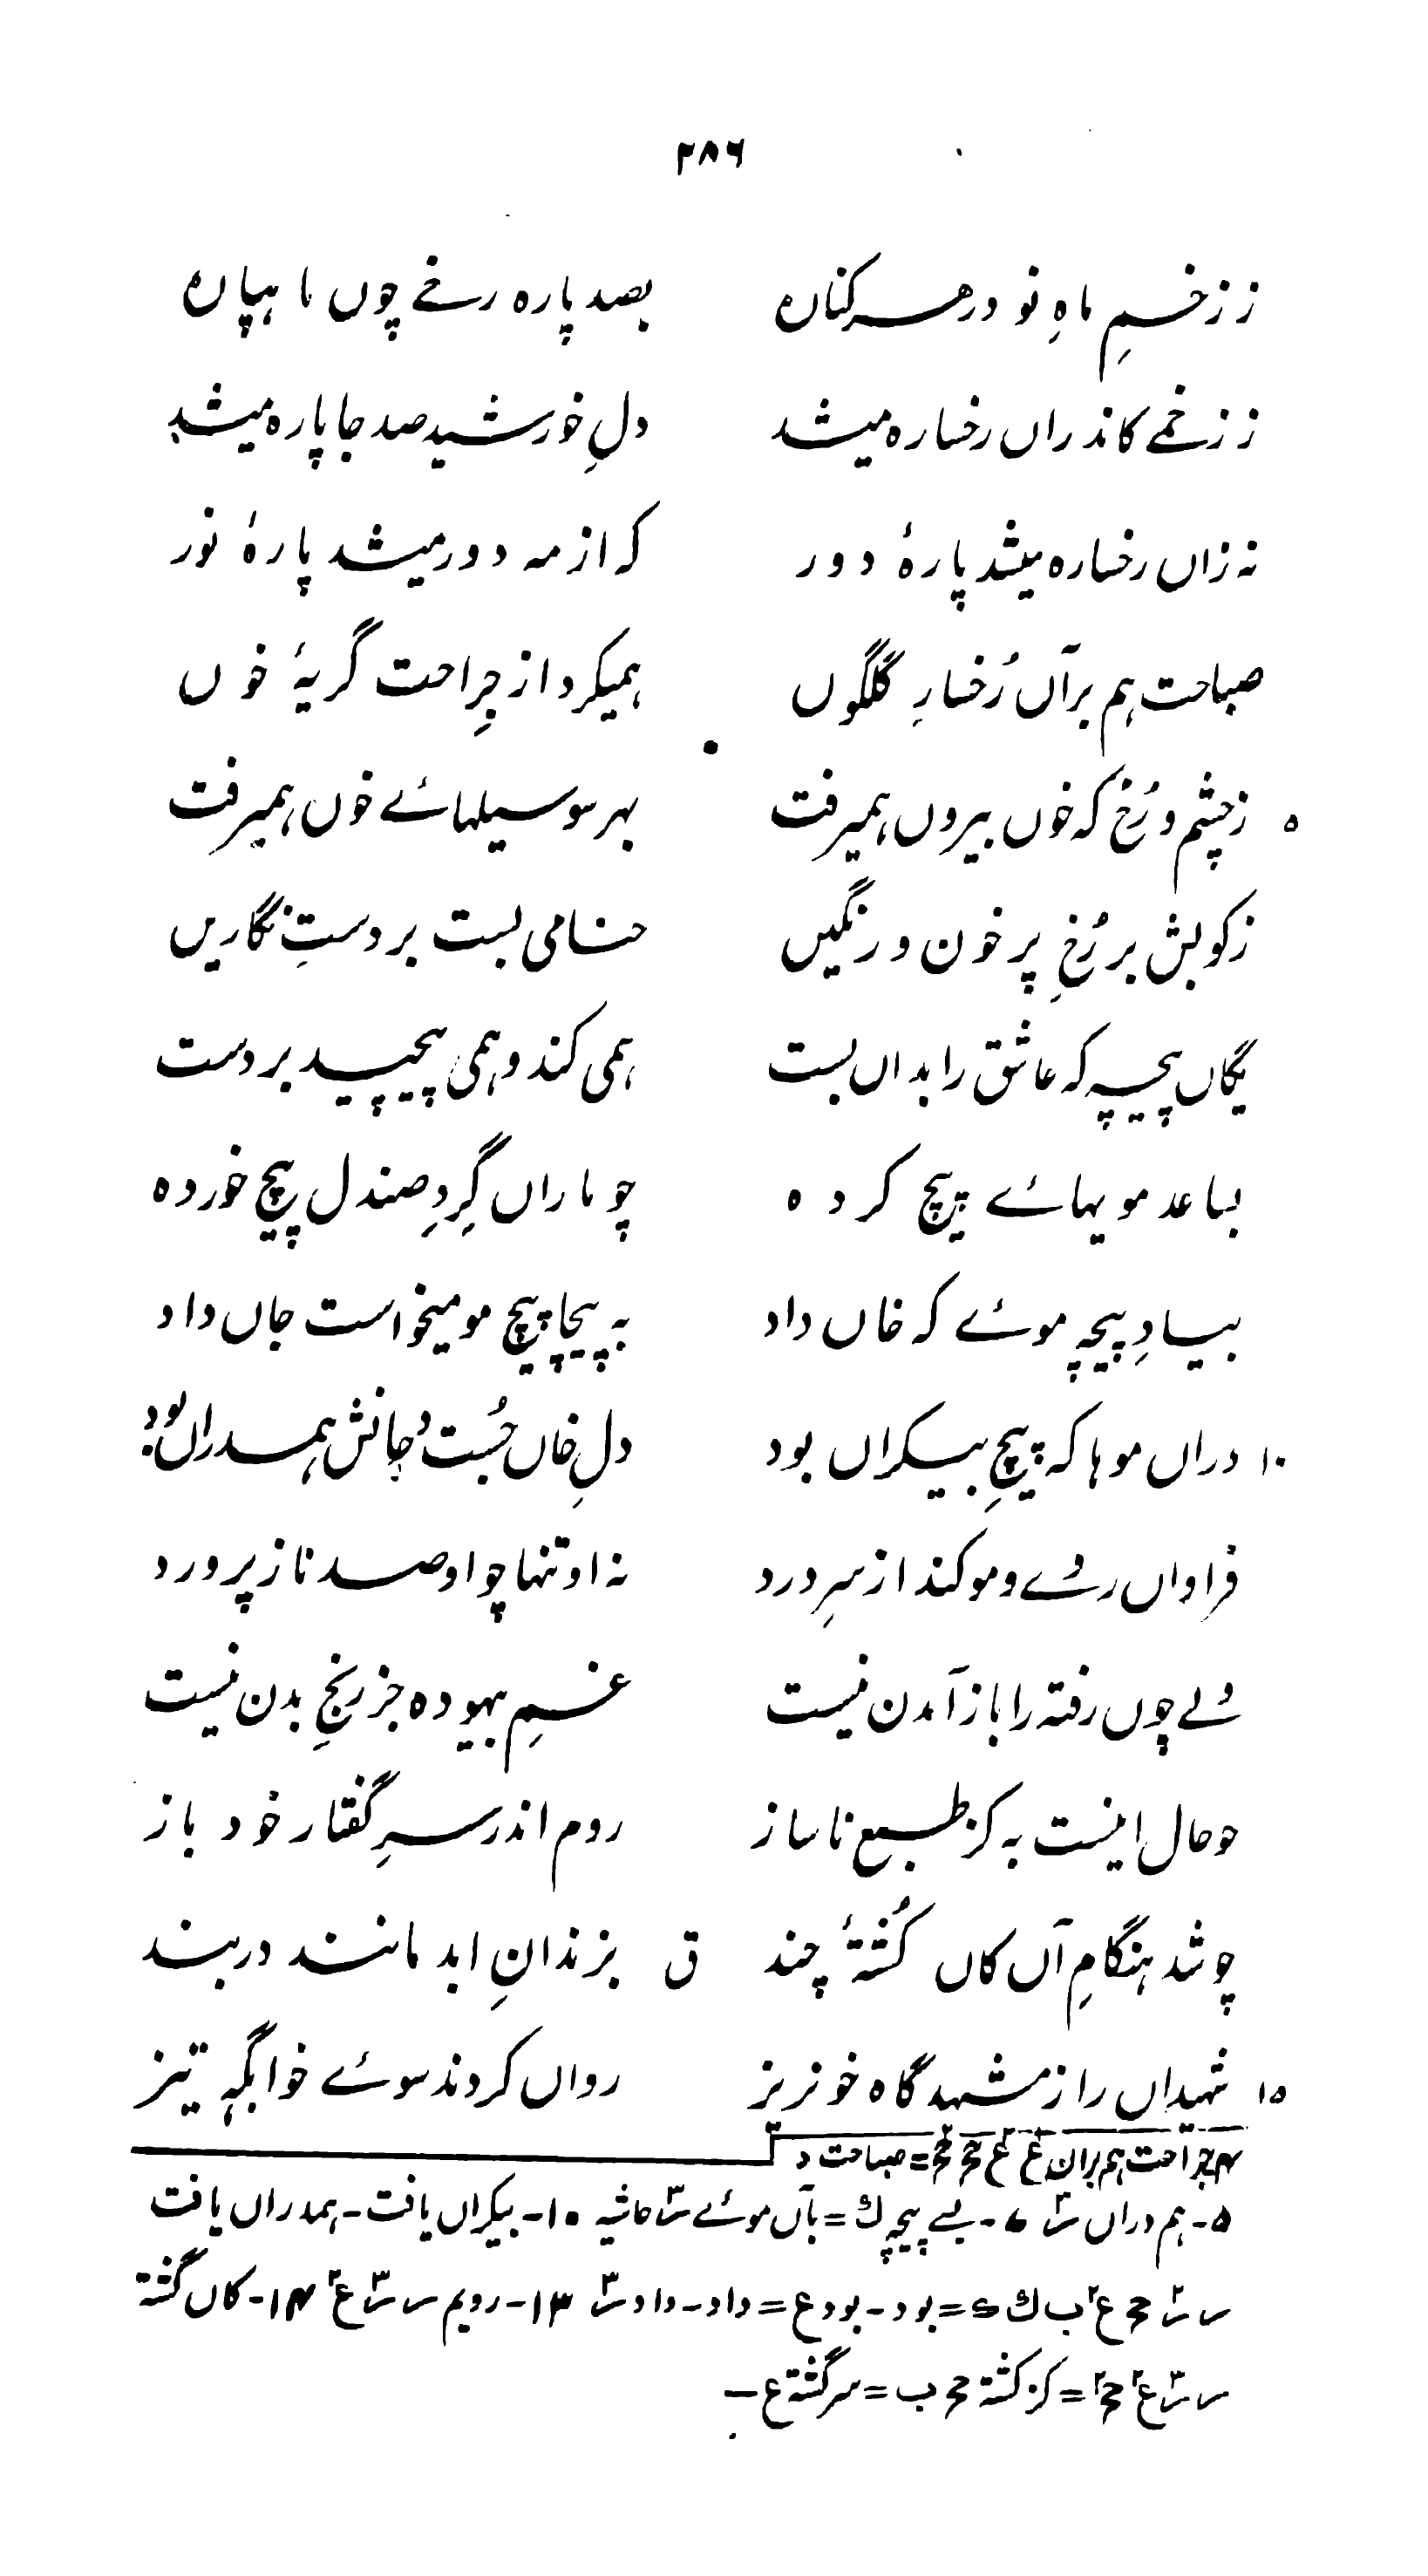 ۲۸۶
ز زخمِ ماہِ نو در هر کنارہ بصد پارہ رخے چوں ماہپارہ
ز زخمے کاندراں رخسارہ میشد دلِ خورشید صد جا پارہ میشد
نہ زاں رخسارہ میشد پارۂ دور کہ از مہ دور میشد پارۂ نور
صباحت ہم برآں رُخسارِ گلگوں ہمیکرد از جِراحت گریۂ خوں
۵ ز چشم و رُخ کہ خوں بیروں ہمیرفت بہر سو سیلہائے خوں ہمیرفت
ز کوبش بر رُخِ پر خون و رنگیں حنا می بست بر دستِ نگاریں
یگاں پیچہ کہ عاشق را بداں بست ہمی کند و ہمی پیچید بر دست
بساعد مویہائے پیچ کردہ چو ماراں گِردِ صندل پیچ خوردہ
بیادِ پیچہ موئے کہ خاں داد بہ پیچاپیچ مو میخواست جاں داد
۱۰ دراں موہا کہ پیچِ بیکراں بود دلِ خاں جُست و جانش ہمدراں بود
فراواں رُوے و مو کند از سرِ درد نہ او تنہا چو او صد ناز پرورد
ولے چوں رفتہ را باز آمدن نیست غمِ بیہودہ جز رنجِ بدن نیست
چو حال اینست بہ کز طبع ناساز روم اندر سرِ گفتار خود باز
چو شد ہنگامِ آں کاں کُشتۂ چند ق بزندانِ ابد مانند در بند
۱۵ شہیداں را ز مشہد گاہ خونریز رواں کردند سوئے خوابگہ تیز
۴ جراحت ہم بران ع ع ح ح = صباحت د
۵- ہم دراں س ۷- بے پیچہ ك = بآں موئے س حاشیہ ۱۰- بیکراں یافت- ہمدراں یافت
س س ح ع ب ك = بود- بود ع = داد- داد س ۱۳- رویم س س ع ۱۴- کاں گشتۂ
س س ع ح = کز کشتۂ ح ب = سرگشتۂ ع –